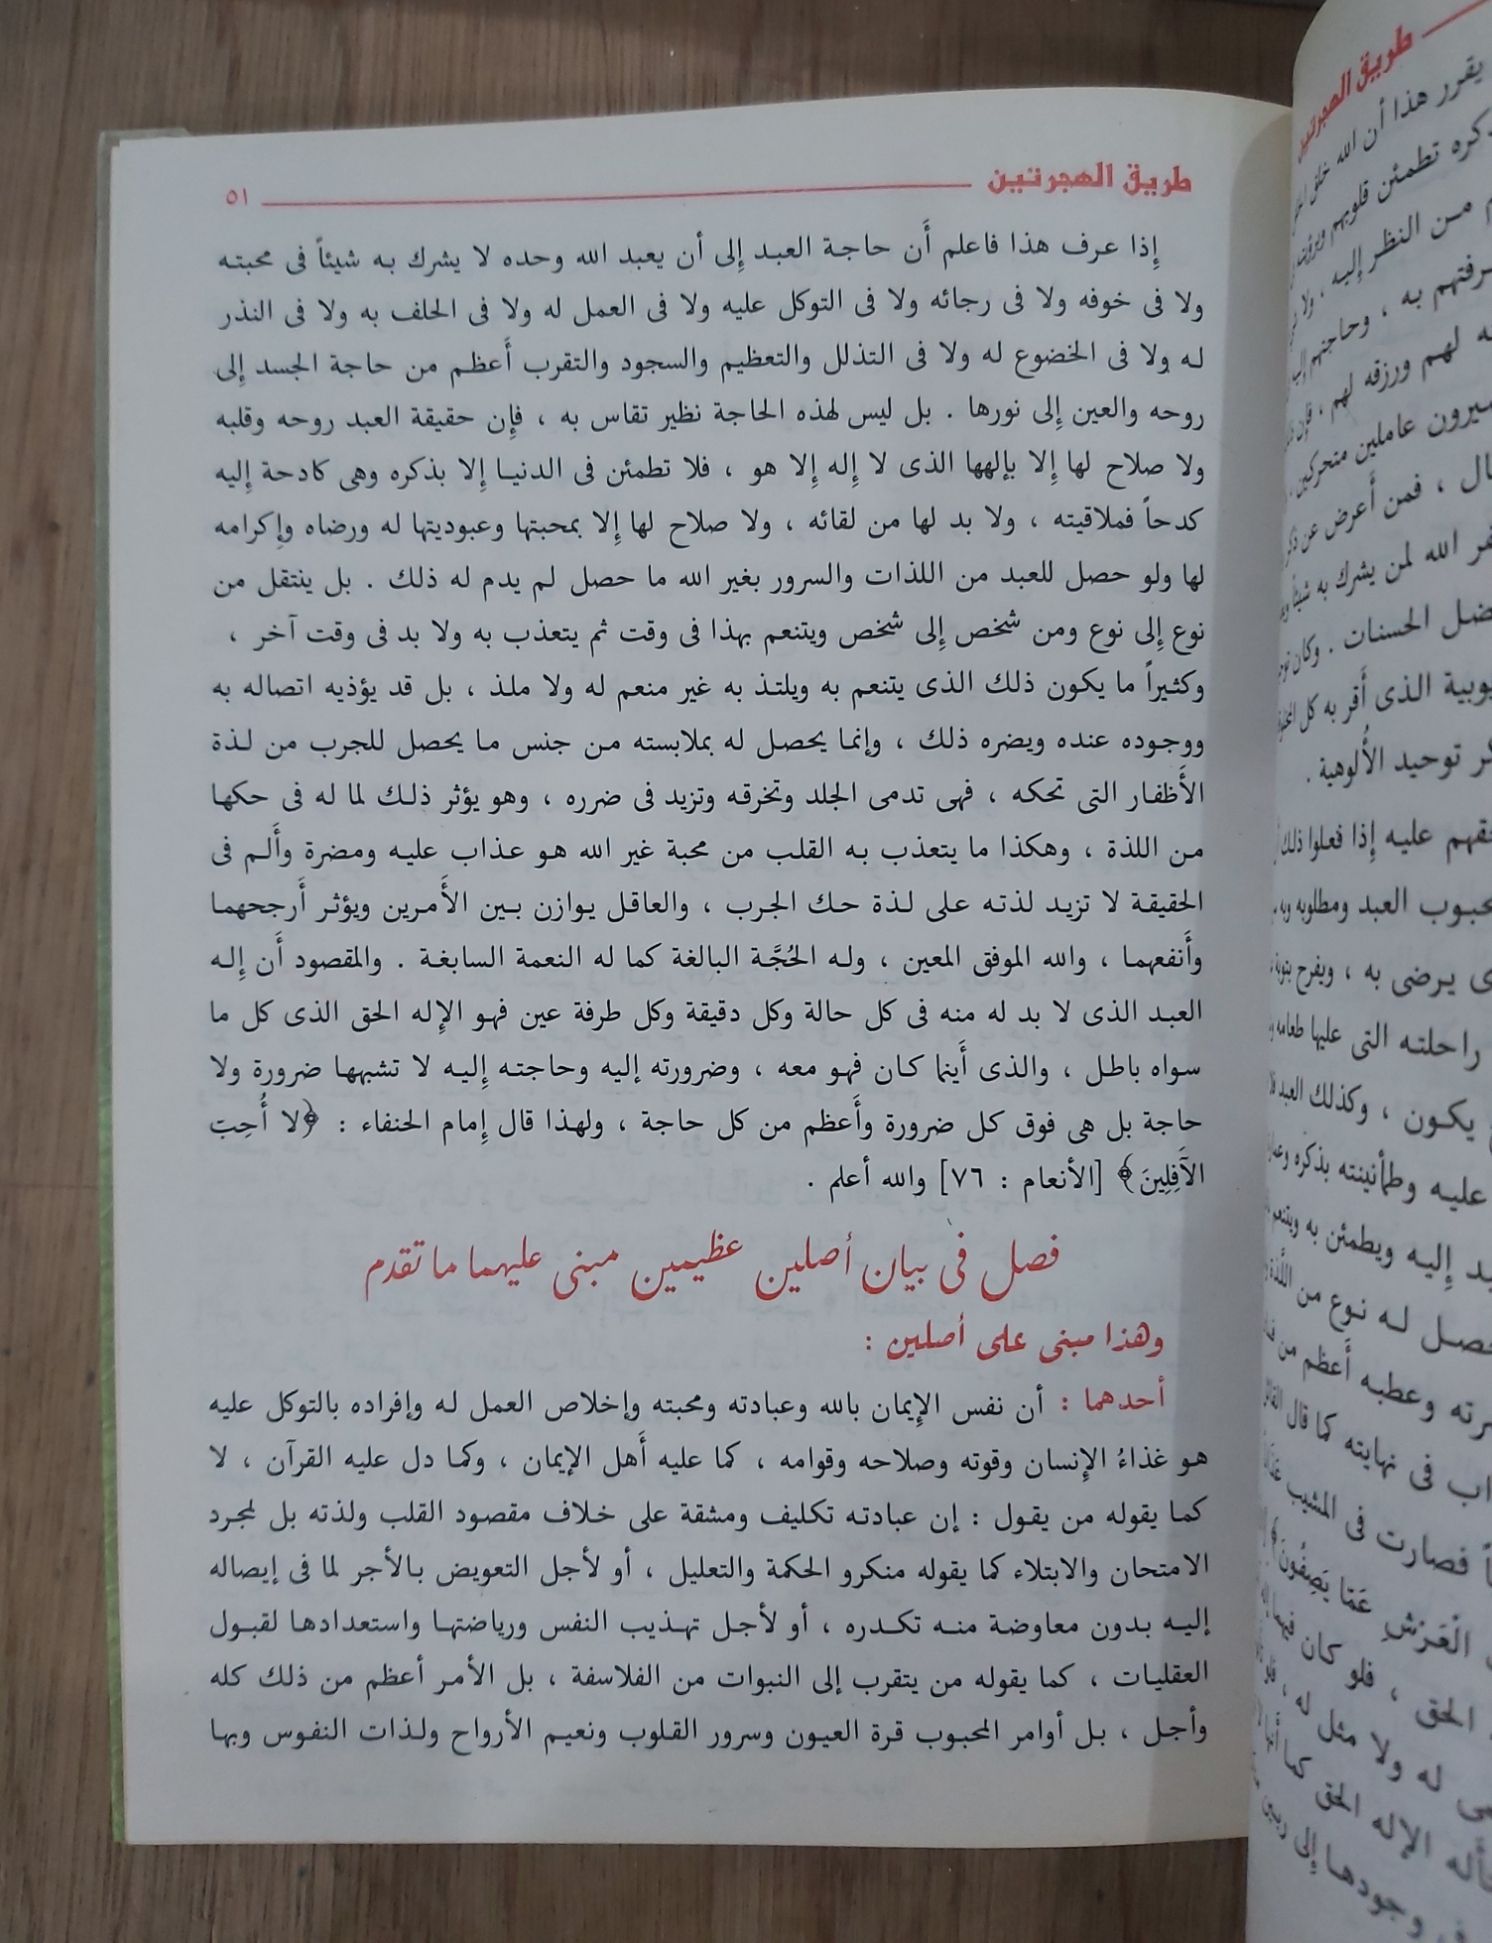 طريق الهجرتين ٥١
إِذا عرف هذا فاعلم أَن حاجة العبد إِلى أن يعبد الله وحده لا يشرك به شيئاً فى محبته
ولا فى خوفه ولا فى رجائه ولا فى التوكل عليه ولا فى العمل له ولا فى الحلف به ولا فى النذر
له ولا فى الخضوع له ولا فى التذلل والتعظيم والسجود والتقرب أَعظم من حاجة الجسد إِلى
روحه والعين إِلى نورها . بل ليس لهذه الحاجة نظير تقاس به ، فإِن حقيقة العبد روحه وقلبه
ولا صلاح لها إِلا بإلهها الذى لا إِله إِلا هو ، فلا تطمئن فى الدنيا إِلا بذكره وهى كادحة إِليه
كدحاً فملاقيته ، ولا بد لها من لقائه ، ولا صلاح لها إِلا بمحبتها وعبوديتها له ورضاه وإِكرامه
لها ولو حصل للعبد من اللذات والسرور بغير الله ما حصل لم يدم له ذلك . بل ينتقل من
نوع إِلى نوع ومن شخص إِلى شخص ويتنعم بهذا فى وقت ثم يتعذب به ولا بد فى وقت آخر ،
وكثيراً ما يكون ذلك الذى يتنعم به ويلتذ به غير منعم له ولا ملذ ، بل قد يؤذيه اتصاله به
ووجوده عنده ويضره ذلك ، وإنما يحصل له بملابسته من جنس ما يحصل للجرب من لذة
الأَظفار التى تحكه ، فهى تدمى الجلد وتخرقه وتزيد فى ضرره ، وهو يؤثر ذلك لما له فى حكها
من اللذة ، وهكذا ما يتعذب به القلب من محبة غير الله هو عذاب عليه ومضرة وأَلم فى
الحقيقة لا تزيد لذته على لذة حك الجرب ، والعاقل يوازن بين الأَمرين ويؤثر أَرجحهما
وأَنفعهما ، والله الموفق المعين ، وله الحُجَّة البالغة كما له النعمة السابغة . والمقصود أَن إِله
العبد الذى لا بد له منه فى كل حالة وكل دقيقة وكل طرفة عين فهو الإِله الحق الذى كل ما
سواه باطل ، والذى أَينما كان فهو معه ، وضرورته إليه وحاجته إِليه لا تشبهها ضرورة ولا
حاجة بل هى فوق كل ضرورة وأَعظم من كل حاجة ، ولهذا قال إِمام الحنفاء : ﴿لا أُحِبّ
الآَفِلِينَ﴾ [الأنعام : ٧٦] والله أعلم .
فصل فى بيان أصلين عظيمين مبنى عليهما ما تقدم
وهذا مبنى على أصلين :
أحدهما : أن نفس الإِيمان بالله وعبادته ومحبته وإخلاص العمل له وإفراده بالتوكل عليه
هو غذاءُ الإِنسان وقوته وصلاحه وقوامه ، كما عليه أَهل الإيمان ، وكما دل عليه القرآن ، لا
كما يقوله من يقول : إن عبادته تكليف ومشقة على خلاف مقصود القلب ولذته بل لمجرد
الامتحان والابتلاء كما يقوله منكرو الحكمة والتعليل ، أو لأجل التعويض بالأجر لما فى إيصاله
إليه بدون معاوضة منه تكدره ، أو لأجل تهذيب النفس ورياضتها واستعدادها لقبول
العقليات ، كما يقوله من يتقرب إلى النبوات من الفلاسفة ، بل الأمر أعظم من ذلك كله
وأجل ، بل أوامر المحبوب قرة العيون وسرور القلوب ونعيم الأرواح ولذات النفوس وبها
طريق الهجرتين
يقرر هذا أن الله خلق
تطمئن قلوبهم
من النظر إليه ، ولا
به ، وحاجتهم
لهم ورزقه لهم ،
عاملين متحركين
، فمن أَعرض عن
الله لمن يشرك به شيئاً
الحسنات . وكان
الذى أَقر به كل
توحيد الأُلوهية .
عليه إِذا فعلوا ذلك
العبد ومطلوبه
يرضى به ، ويفرح
راحلته التى عليها طعامه
يكون ، وكذلك العبد
عليه وطمأنينته بذكره
إِليه ويطمئن به
له نوع من اللذة
وعطبه أَعظم من
فى نهايته كما قال
فصارت فى المشيب
الْعَرْشِ عَمَّا يَصِفُونَ﴾
الحق ، فلو كان
له ولا مثل له
الإله الحق كما
وجودها إلى